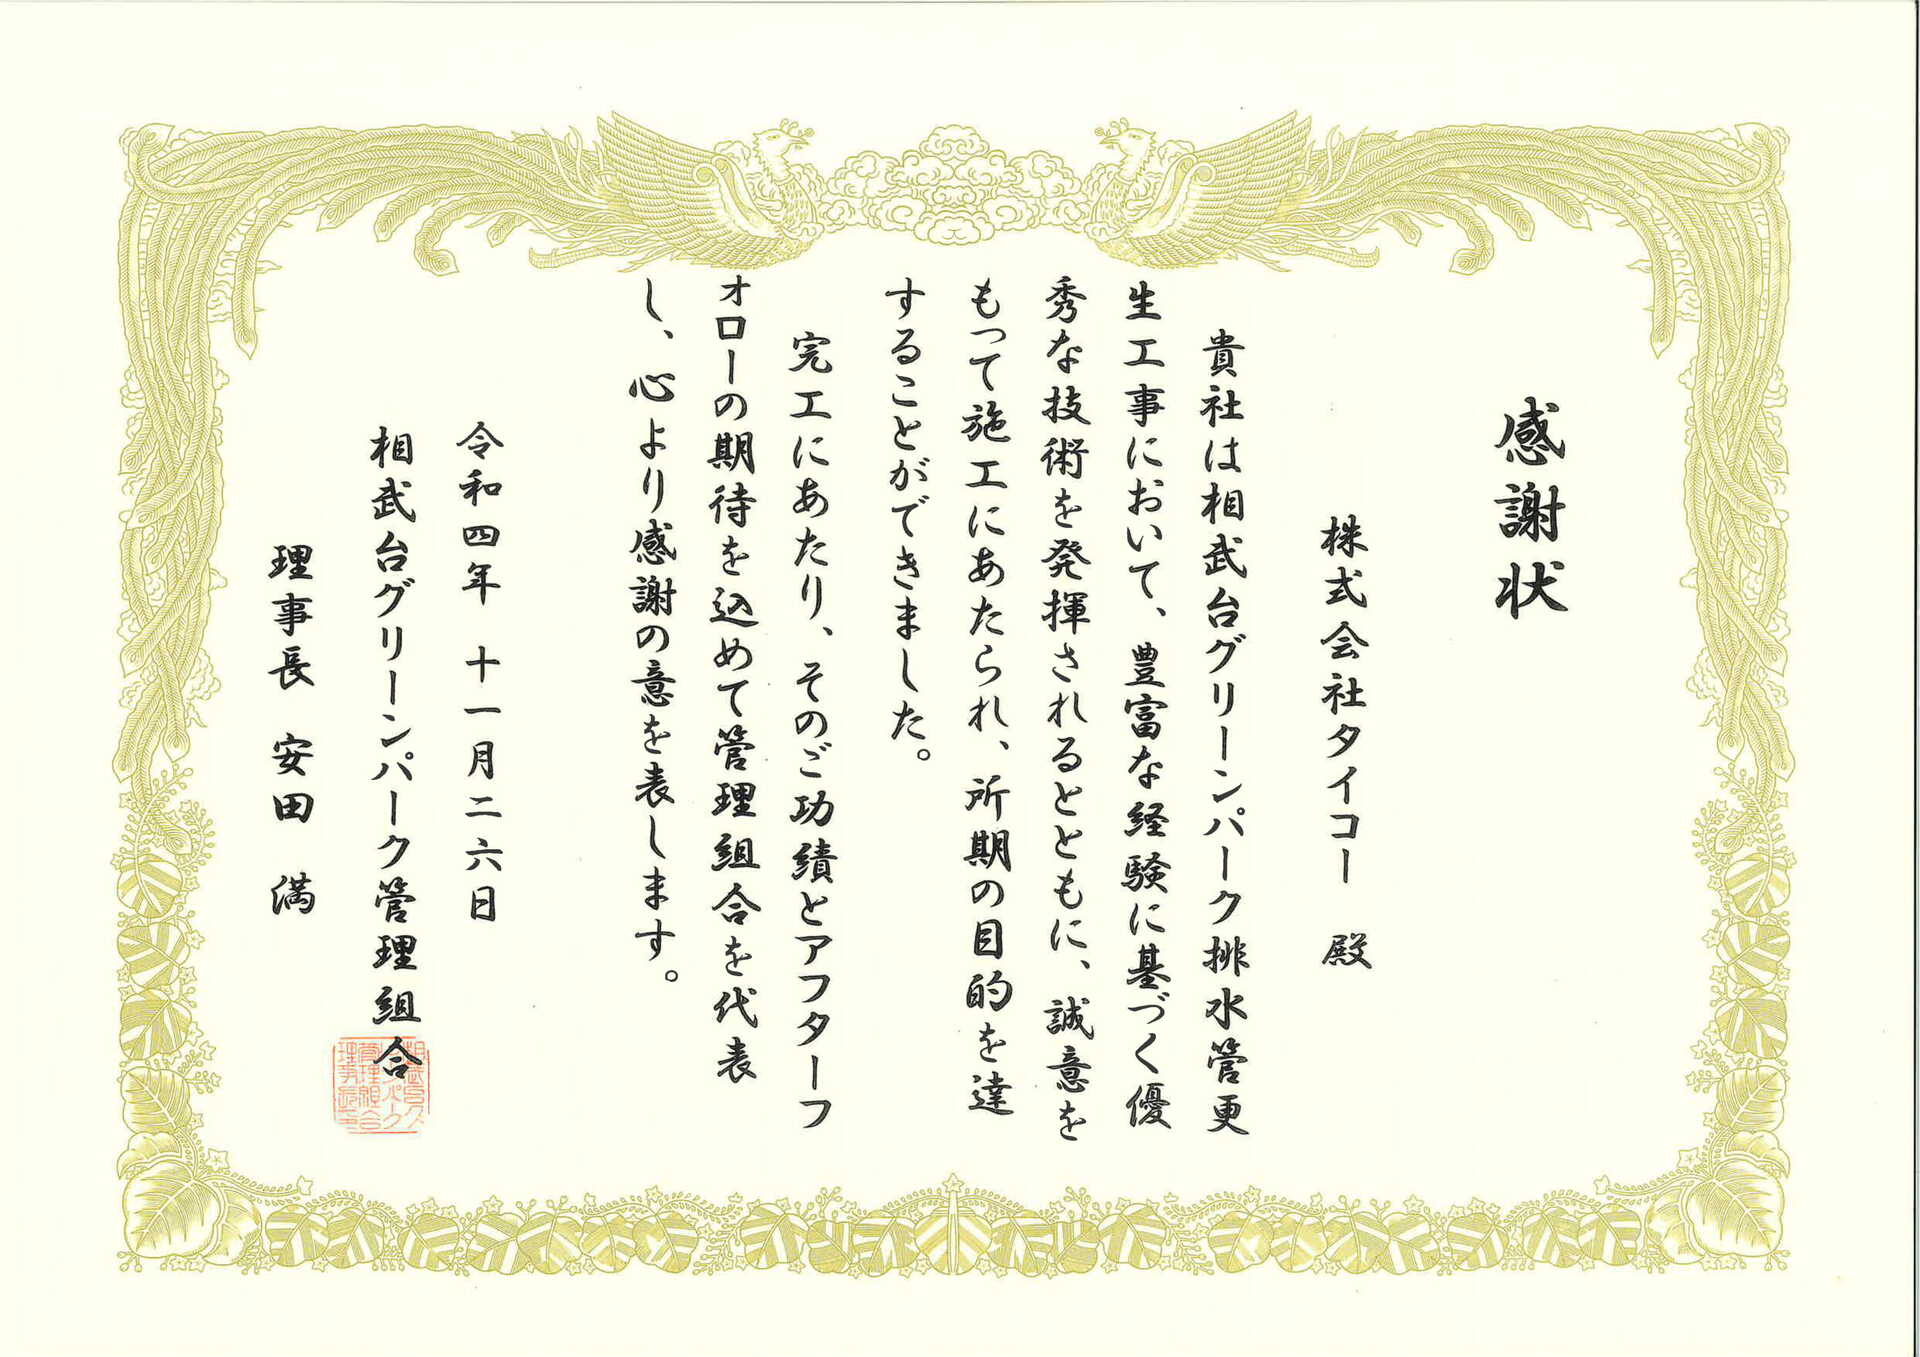 感謝状
株式会社タイコー 殿
貴社は相武台グリーンパーク排水管更
生工事において、豊富な経験に基づく優
秀な技術を発揮されるとともに、誠意を
もって施工にあたられ、所期の目的を達
することができました。
完工にあたり、そのご功績とアフターフ
オローの期待を込めて管理組合を代表
し、心より感謝の意を表します。
令和四年 十一月二六日
相武台グリーンパーク管理組合
理事長 安田 満